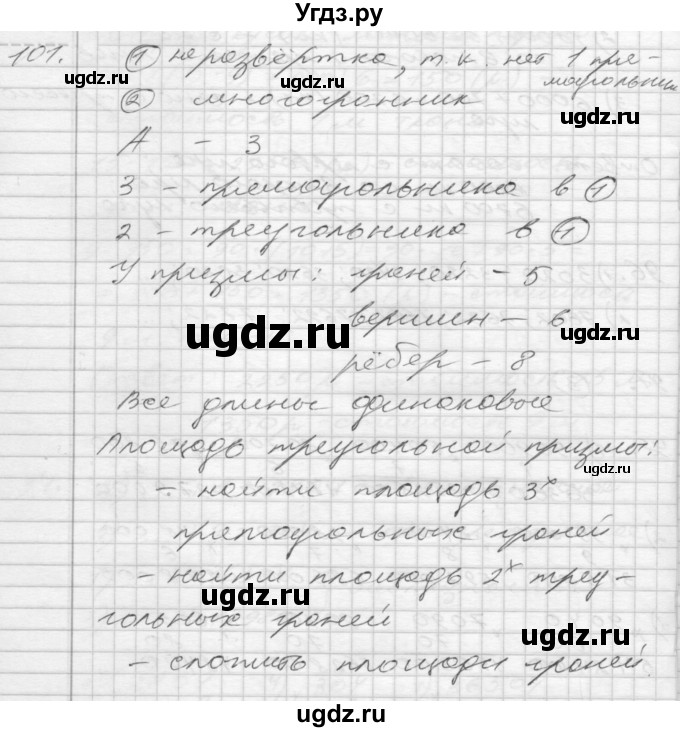 Угдз.ру
101. ① не развёртка, т.к. нет 1 пря-
моугольник
② многогранник
А - 3
3 - прямоугольника в ①
2 - треугольника в ①
У призмы: граней - 5
вершин - 6
рёбер - 8
Все длины одинаковые
Площадь треугольной призмы:
- найти площадь 3х
прямоугольных граней
- найти площадь 2х треу-
гольных граней
- сложить площади граней.
ugdz.ru
ugdz.ru
ugdz.ru
ugdz.ru
ugdz.ru
ugdz.ru
ugdz.ru
ugdz.ru
ugdz.ru
ugdz.ru